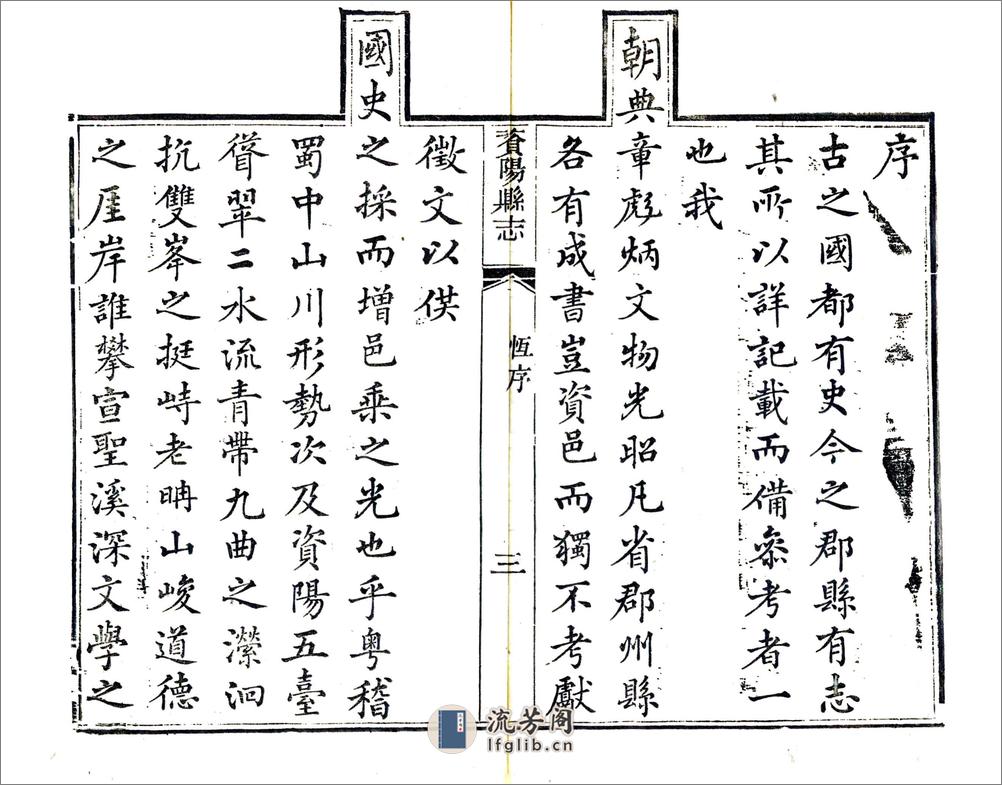 序
古之國都有史今之郡縣有志
其所以詳記載而備叅考者一
也我
朝典章彪炳文物光昭凡省郡州縣
各有成書豈資邑而獨不考獻
資陽縣志
恆序
三
徵文以供
國史之採而增邑乘之光也乎粤稽
蜀中山川形勢次及資陽五臺
聳翠二水流青帶九曲之瀠洄
抗雙峯之挺峙老聃山峻道德
之厓岸誰攀宣聖溪深文學之
流芳阁
lfglib.cn